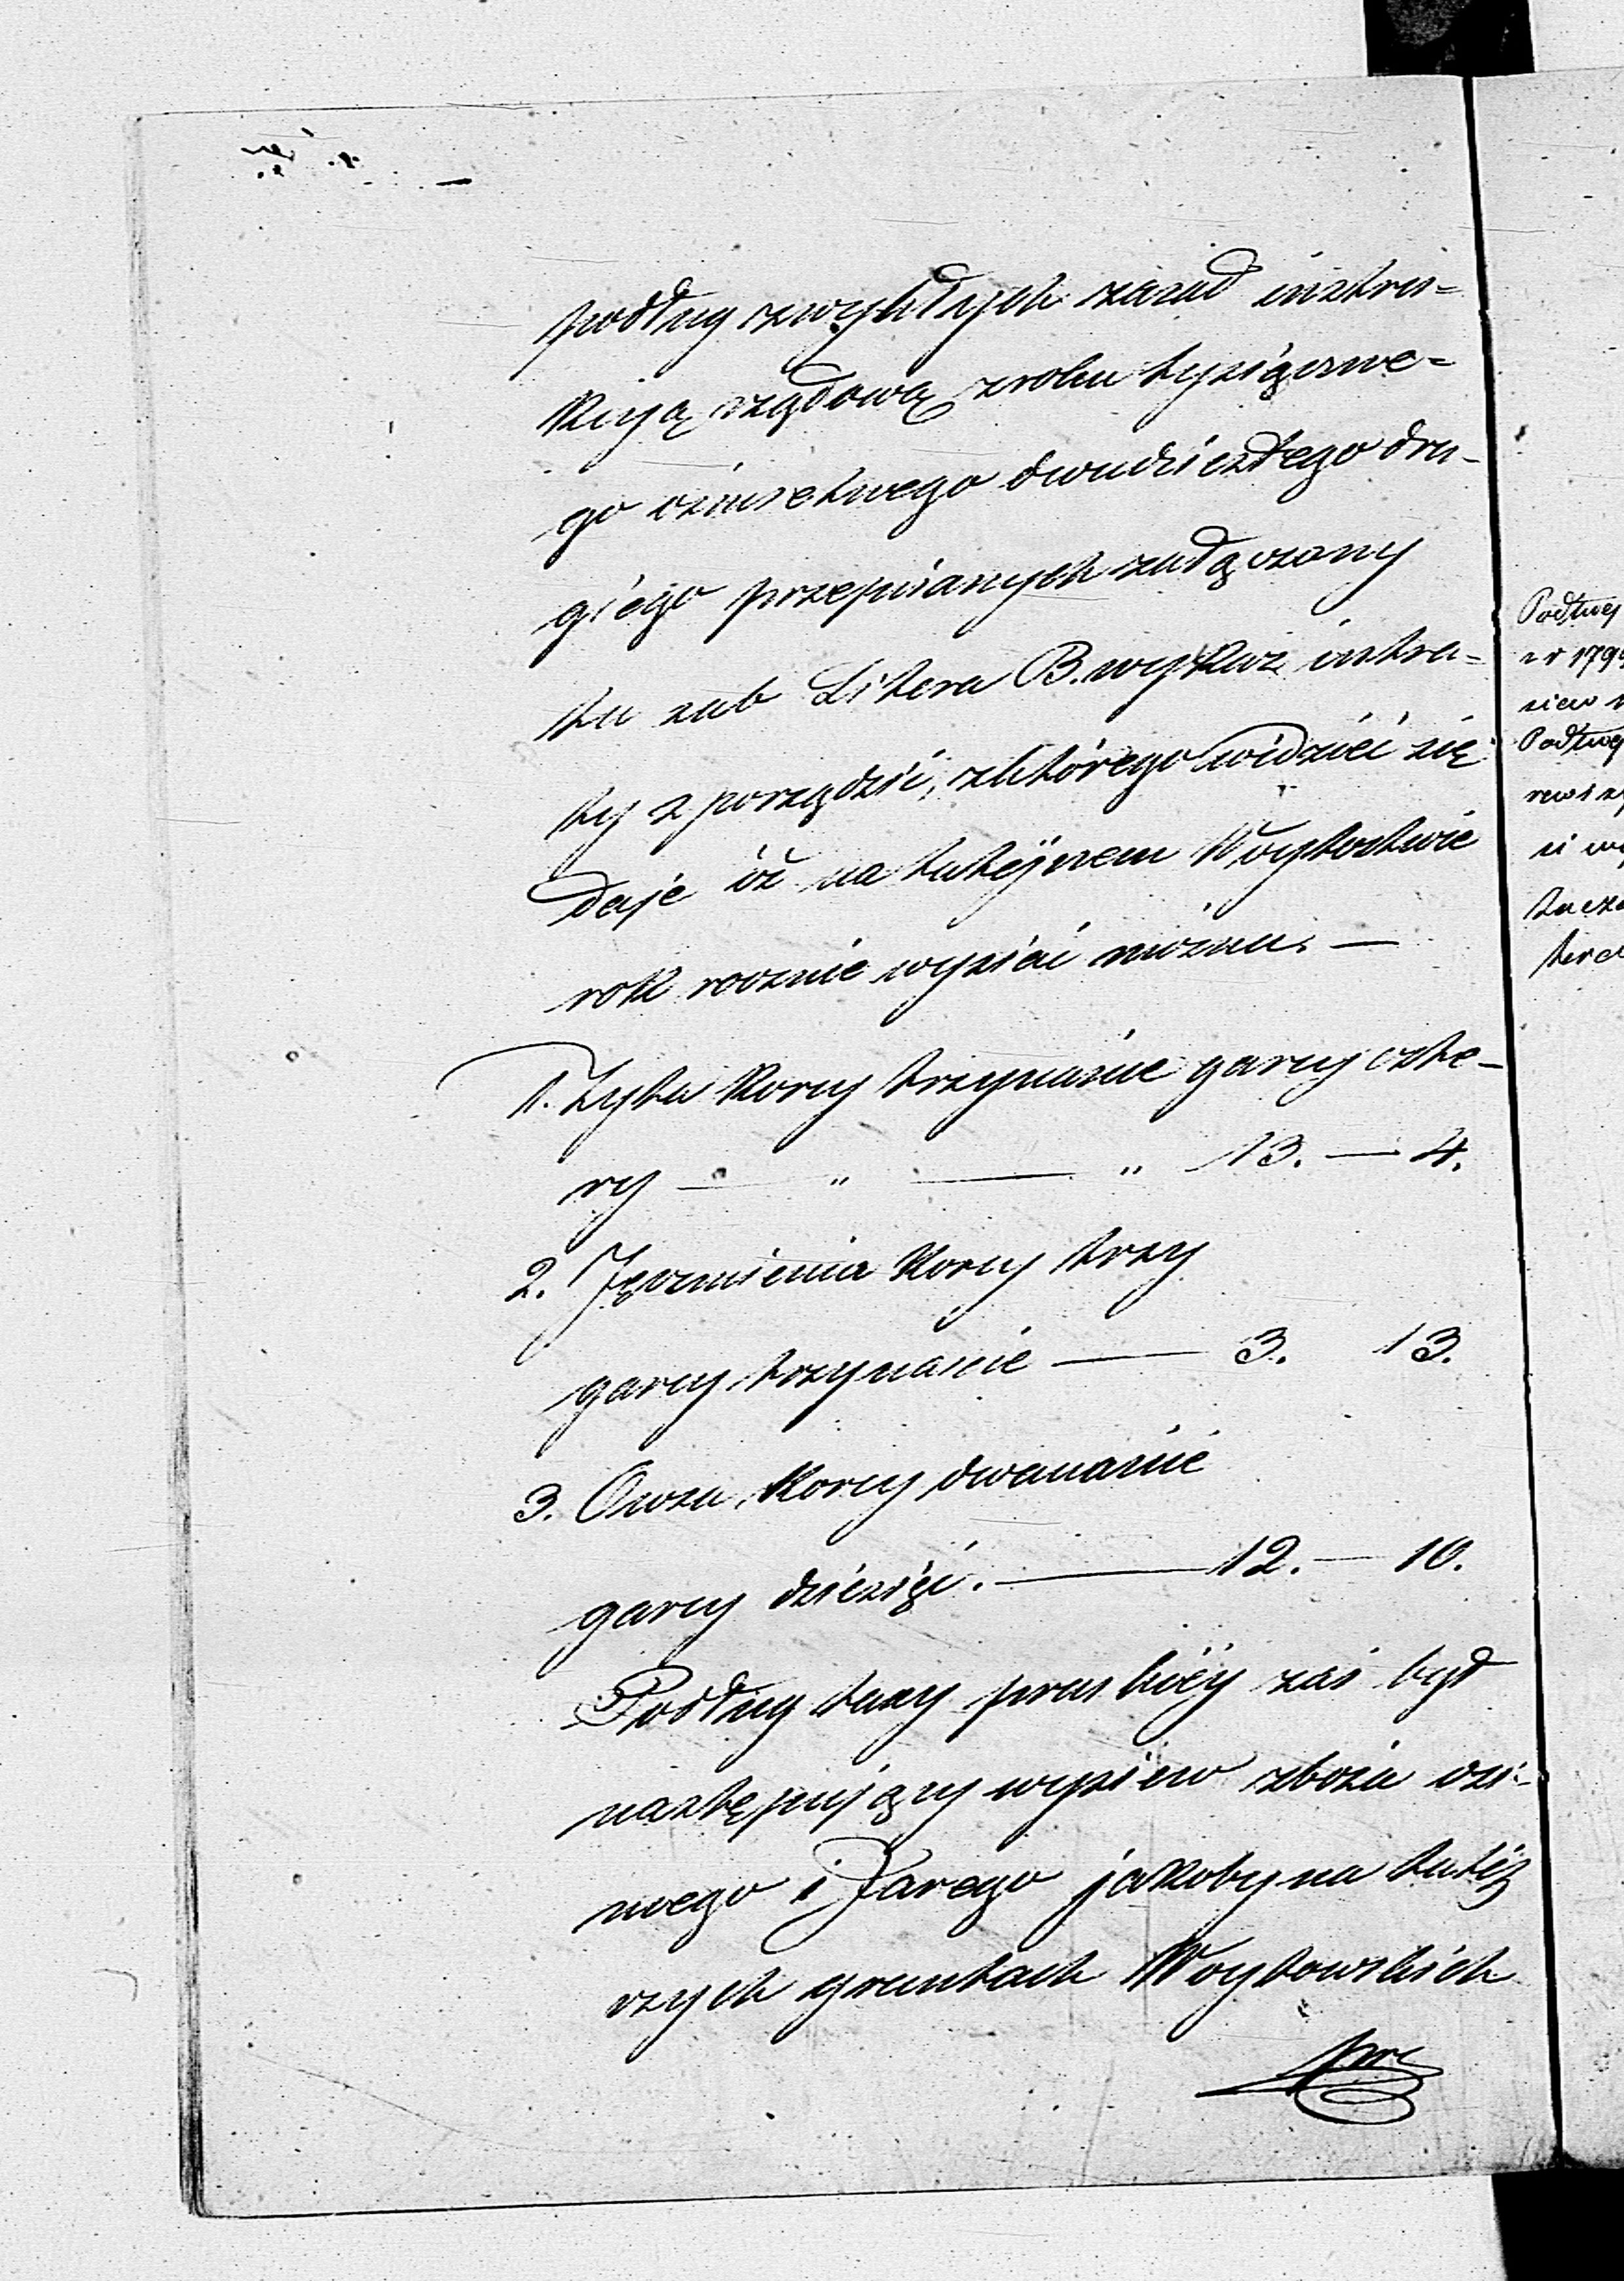 podług zwykłych zasad instru-
kcyją rządową z roku tysiączne-
go ośmsetnego dwudziestego dru-
giégo przepisanych załączony
tu sub Litera B. wykaz intra-
ty zporządzić, zktórego widziéć się
daje iż na tutéjszem Woytostwie
rok rocznie wysiać można. —
1. Żyta Korcy trzynaście garcy czte-
ry — " — " 13. — 4.
2. Jęczmienia Korcy trzy
garcy trzynaście — 3. 13.
3. Owsa Korcy dwanaście
garcy dziésięć. — 12. — 10.
Podług taxy pruskiéy zaś był
następujący wysiew zboża ozi-
mego i Jarego jakoby na tutéj
szych gruntach Woytowskich
Podług
z r 1795
siew
Podług